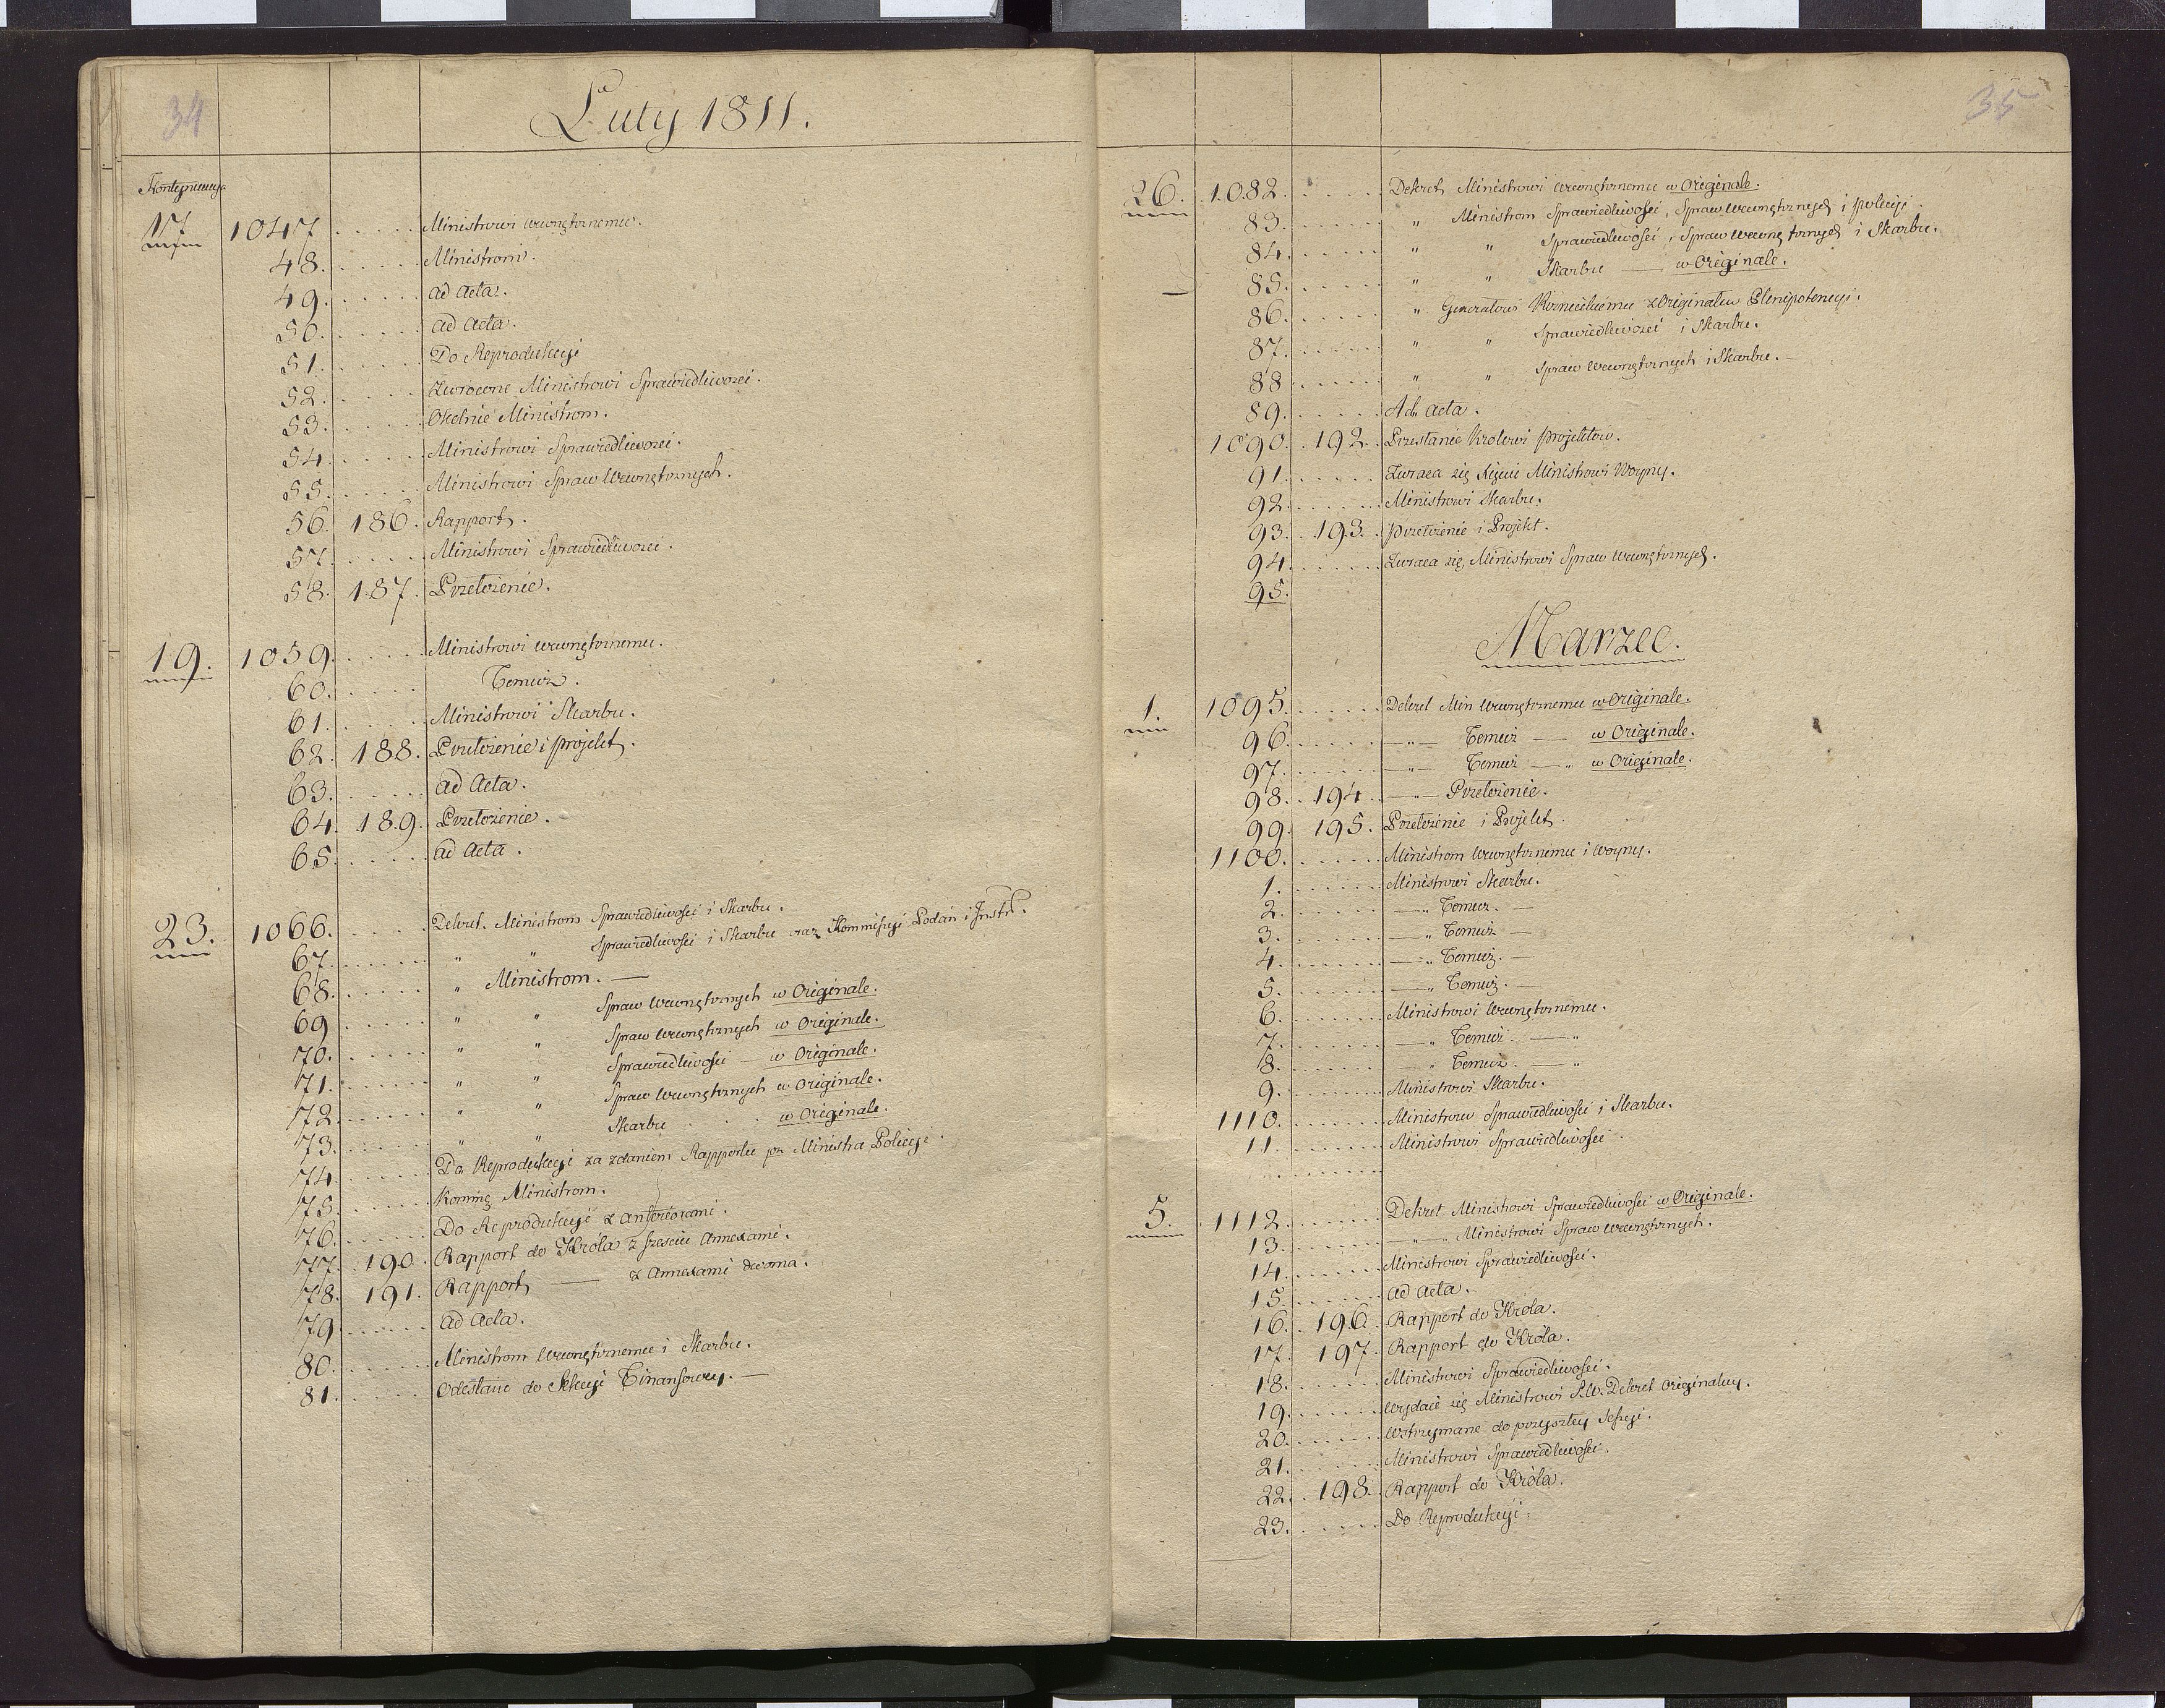 34
Luty 1811.
Kontynuacya
17 1047 ..... Ministrowi wewnętrznemu.
48. ..... Ministrom.
49. ..... ad acta.
50. ..... ad acta.
51. ..... Do Reprodukcyi
52. ..... Zwrocone Ministrowi Sprawiedliwosci.
53. ..... Okolnie Ministrom.
54. ..... Ministrowi Sprawiedliwosci.
55. ..... Ministrowi Spraw Wewnętrznych.
56. 186. Rapport.
57. ..... Ministrowi Sprawiedliwosci.
58. 187. Przełożenie.
19. 1059. ..... Ministrowi wewnętrznemu.
60. ..... Temuż.
61. ..... Ministrowi Skarbu.
62. 188. Przełożenie i projekt.
63. ..... ad Acta.
64. 189. Przełożenie.
65. ..... ad Acta.
23. 1066. ..... Dekret. Ministrom Sprawiedliwości i Skarbu.
67. ..... " " Sprawiedliwości i Skarbu oraz Kommissyi Podań i Instr.
68. ..... " Ministrom. —
69 ..... " " Spraw Wewnętrznych w Originale.
70. ..... " " Spraw Wewnętrznych w Originale.
71. ..... " " Sprawiedliwości — w Originale.
72. ..... " " Spraw Wewnętrznych w Originale.
73. ..... " " Skarbu . . . w Originale.
74. ..... Do Reprodukcyi za zdaniem Rapportu pr Ministra Policyi.
75. ..... Ministrom.
76. ..... Do Reprodukcyi z anterioxami.
77. 190. Rapport do Króla z sześciu Annexami.
78. 191. Rapport — z Annexami dwoma.
79 ..... ad Acta.
80. ..... Ministrom Wewnętrznemu i Skarbu.
81. ..... Odesłane do Sekcyi Finansowey. —
35
26. 1082. ..... Dekret Ministrowi Wewnętrznemu w Originale.
83. ..... " Ministrom Sprawiedliwości, Spraw Wewnętrznych i policyi.
84. ..... " " Sprawiedliwości, Spraw Wewnętrznych i Skarbu.
85. ..... " " Skarbu — w Originale.
86. ..... " Generałowi Rożnieckiemu z Originałem Plenipotencyi.
87. ..... " " Sprawiedliwosci i Skarbu.
88 ..... " " Spraw Wewnętrznych i Skarbu. —
89. ..... Ad. acta.
1090. 192. Przesłanie Krolowi projektow.
91. ..... Zwraca się Xięciu Ministrowi Woyny.
92. ..... Ministrowi Skarbu.
93. 193. Przełożenie i Projekt.
94. ..... Zwraca się Ministrowi Spraw Wewnętrznych.
95.
Marzec.
1. 1095. ..... Dekret Min Wewnętrznemu w Originale.
96. ..... —"— Temuż — w Originale.
97. ..... —"— Temuż —" w Originale.
98. 194. —"— Przełożenie.
99. 195. Przełożenie i Projekt.
1100. ..... Ministrom Wewnętrznemu i Woyny.
1. ..... Ministrowi Skarbu.
2. ..... —" Temuż. —
3. ..... —" Temuż —
4. ..... —" Temuż. —
5. ..... —" Temuż. —
6. ..... Ministrowi Wewnętrznemu.
7. ..... —" Temuż —"
8. ..... —" Temuż. —"
9. ..... Ministrowi Skarbu.
1110. ..... Ministrom Sprawiedliwości i Skarbu.
11. ..... Ministrowi Sprawiedliwości.
5. 1112. ..... Dekret Ministrowi Sprawiedliwości w Originale.
13. ..... —"— Ministrowi Spraw Wewnętrznych.
14. ..... Ministrowi Sprawiedliwości.
15. ..... ad Acta.
16. 196. Rapport do Króla.
17. 197. Rapport do Króla.
18. ..... Ministrowi Sprawiedliwości.
19. ..... Wydaie się Ministrowi S.W. Dekret Originalny.
20. ..... Wstrzymane do przyszłey Sessyi.
21. ..... Ministrowi Sprawiedliwości.
22. 198. Rapport do Króla.
23. ..... Do Reprodukcyi.